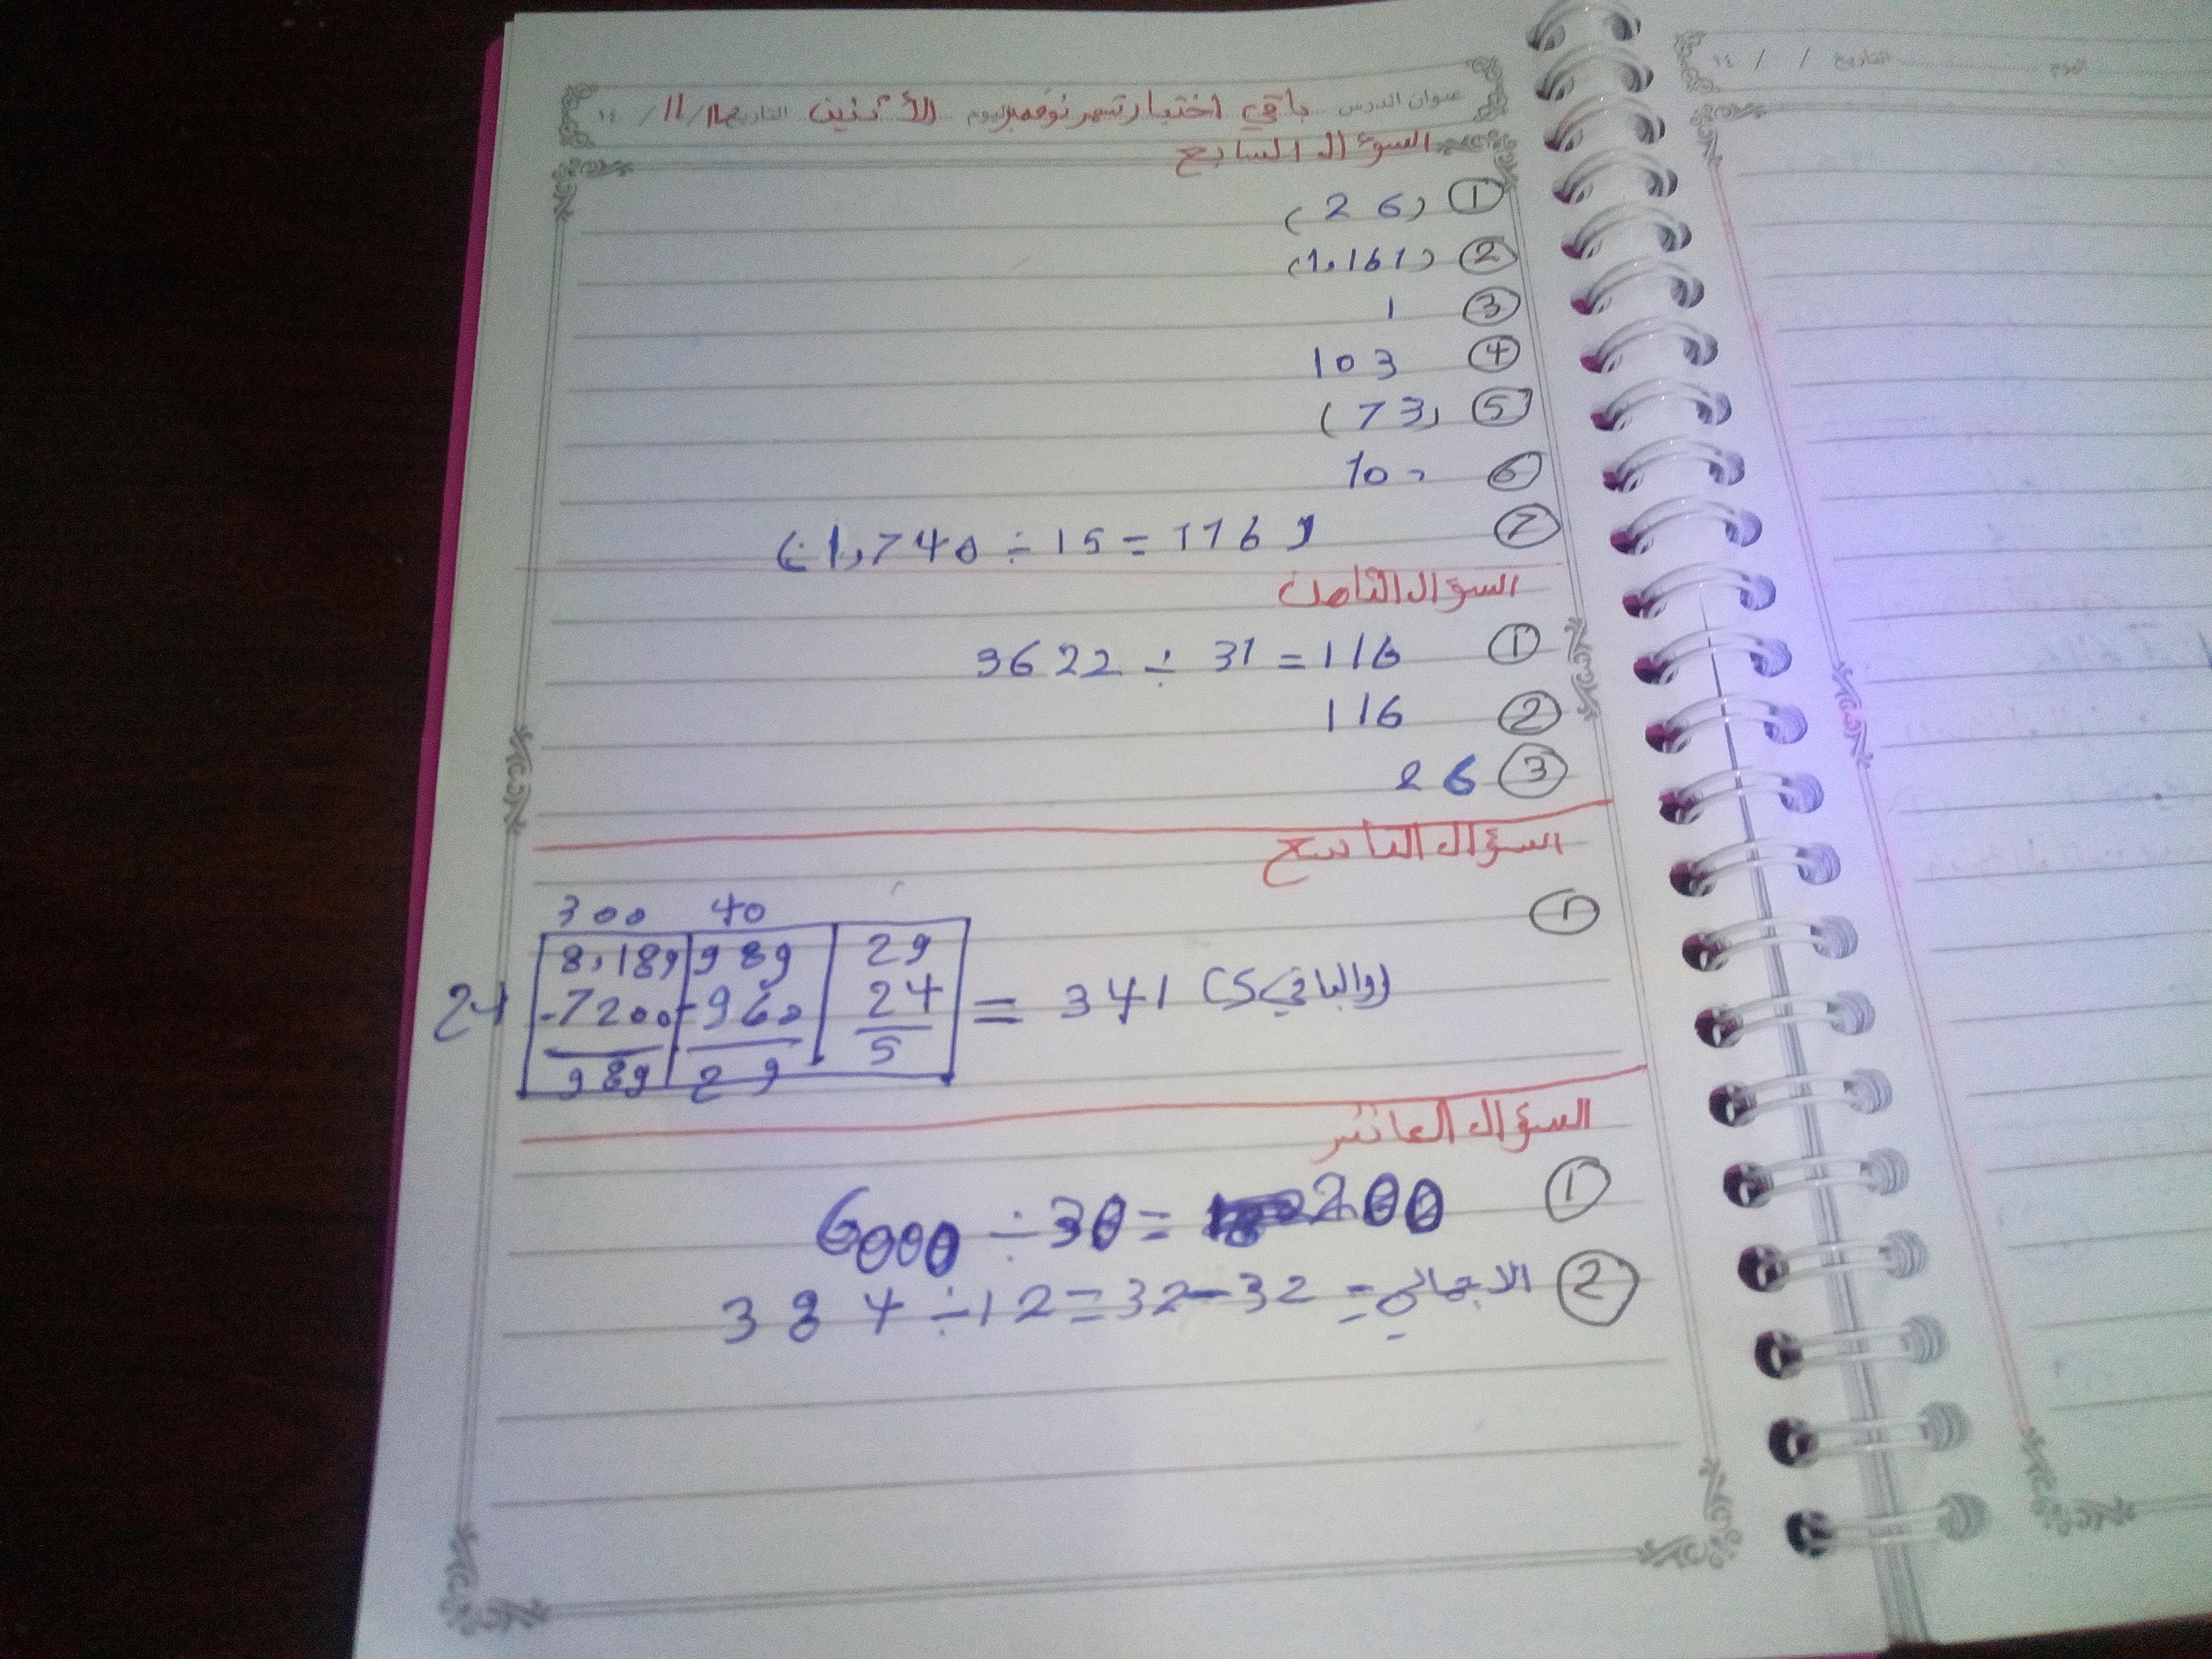 عنوان الدرس باقي اختبار شهر نوفمبر اليوم الأثنين التاريخ / 11 / 14
السؤال السابع
① (26)
② (1,161)
③ 1
④ 103
⑤ (73)
⑥ 10
⑦ 1,740 ÷ 15 = 116
السؤال الثامن
① 3622 ÷ 31 = 116
② 116
③ 26
السؤال التاسع
①
300 40
8,189 989 29
24 -7200 -960 24 = 341 (والباقي 5)
989 29 5
السؤال العاشر
① 6000 ÷ 30 = 200
② 384 ÷ 12 = 32 - 32 = الاجمالي
التاريخ / / 14